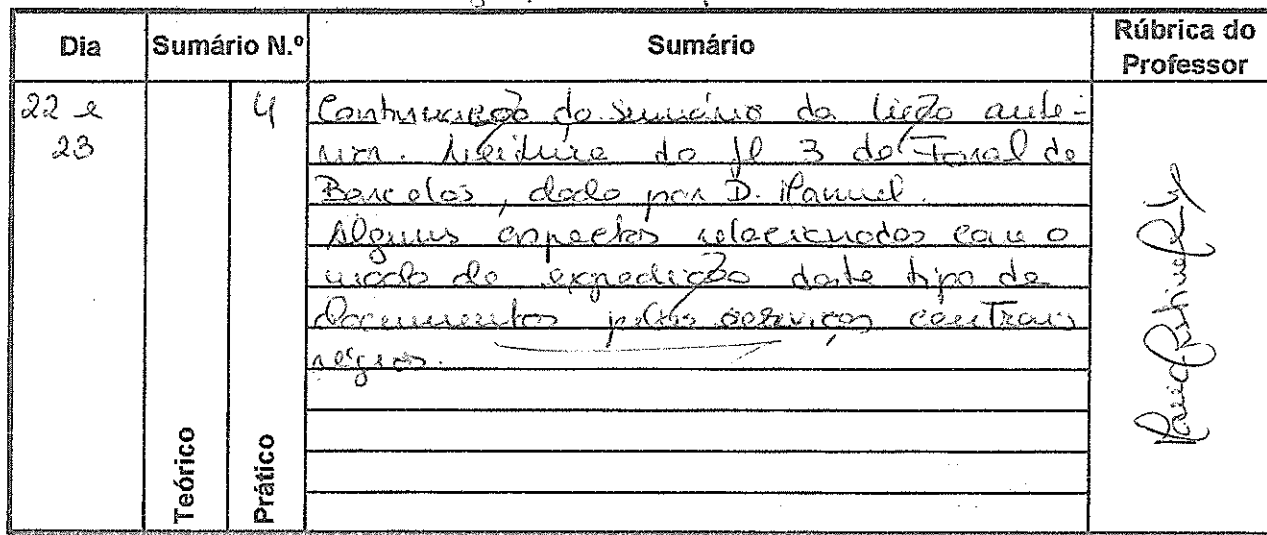 Dia Sumário N.º Sumário Rúbrica do Professor
22 e 23
4
Teórico
Prático
Continuação do Sumário da lição ante-
rior. Leitura do fl 3 do Foral de
Barcelos, dado por D. Manuel.
Alguns aspectos relacionados com o
modo de expedição deste tipo de
documentos pelos serviços centrais
régios.